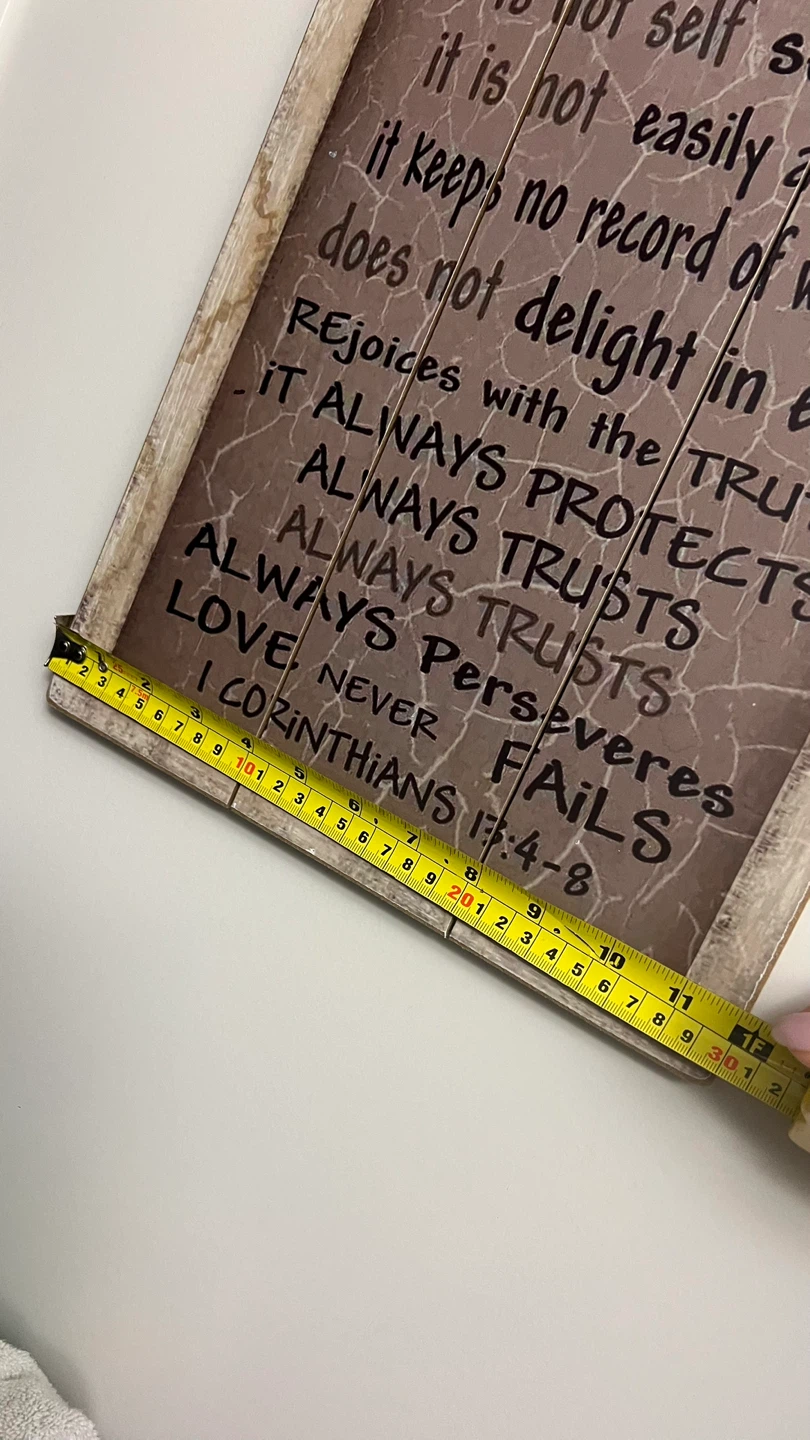 is not self
it is not easily
it keeps no record of
does not delight in
REjoices with the
iT ALWAYS PROTECTS
ALWAYS TRUSTS
ALWAYS TRUSTS
ALWAYS Perseveres
LOVE NEVER FAiLS
1 CORiNTHiANS 13:4-8
2 3 4 5 6 7 8 9 10 11 1F
2 3 4 5 6 7 8 9 10 1 2 3 4 5 6 7 8 9 20 1 2 3 4 5 6 7 8 9 30 1 2